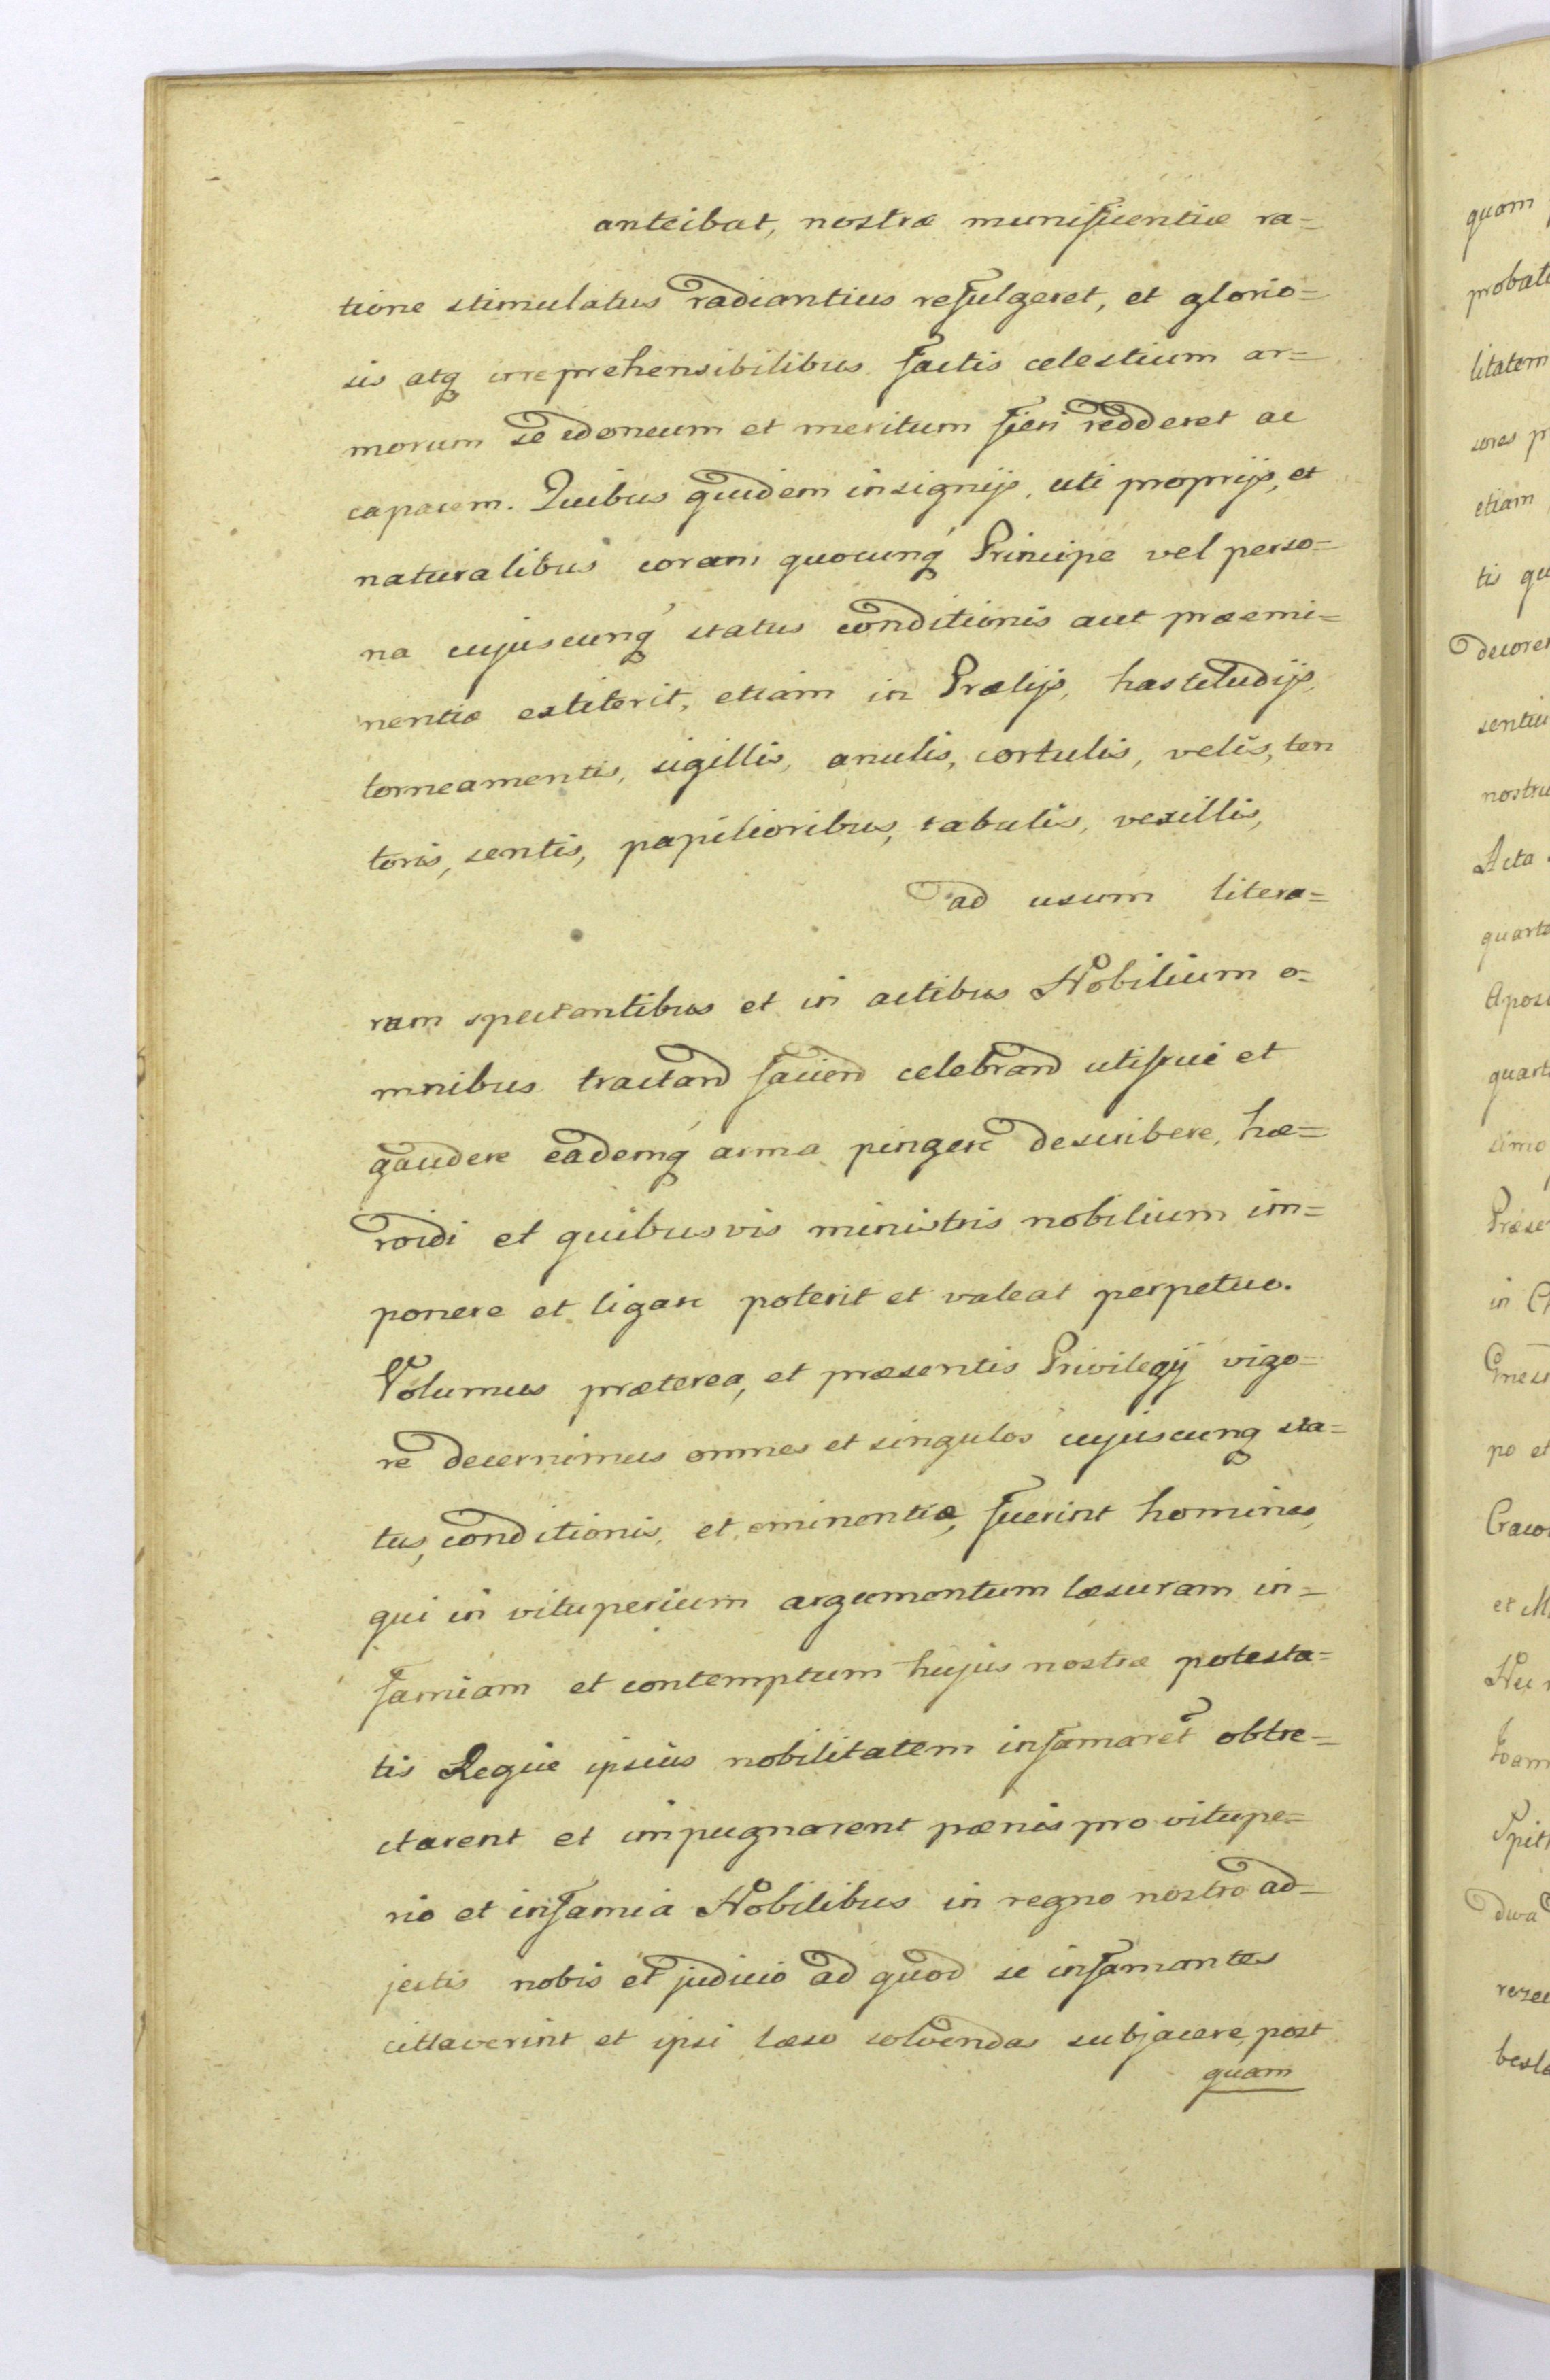 anteibat, nostræ munificentiæ ra=
tione stimulatus radiantius refulgeret, et glorio=
sis atq irreprehensibilibus factis celestium ar=
morum se idoneum et meritum fieri redderet ac
capacem. Quibus quidem insignijs, uti proprijs, et
naturalibus coram quocunq Principe vel perso=
na cujuscunq status conditionis aut præemi=
nentiæ extiterit, etiam in Prælijs, hastiludijs,
torneamentis, sigillis, anulis, cortulis, velis, ten
toris, sentis, papilioribus, tabulis, vexillis,
ad usum litera=
rum spectantibus et in actibus Nobilium o=
mnibus tractand faciend celebrand utifrui et
gaudere eademq arma pingere describere, hæ=
roidi et quibusvis ministris nobilium im=
ponere et ligare poterit et valeat perpetuo.
Volumus præterea, et præsentis Privilegij vigo=
re decernimus omnes et singulos cujuscunq sta=
tus, conditionis, et eminentiæ, fuerint homines,
qui in vituperium argumentum læsuram in=
famiam et contemptum hujus nostræ potesta=
tis Regiæ ipsius nobilitatem infamaret obtre=
ctarent et impugnarent pœnis pro vitupe=
rio et infamia Nobilibus in regno nostro ad=
jectis nobis et judicio ad quod se infamantes
cittaverint et ipsi læso solvendas subjacere, post
quam
quam
probat
litatem
sores p
etiam
tis qu
decore
senti
nostr
Acta
quart
Apos
quart
simo
Præse
in C
Gnes
po et
Craco
et M
Joan
Spit
dwa
rze
besl